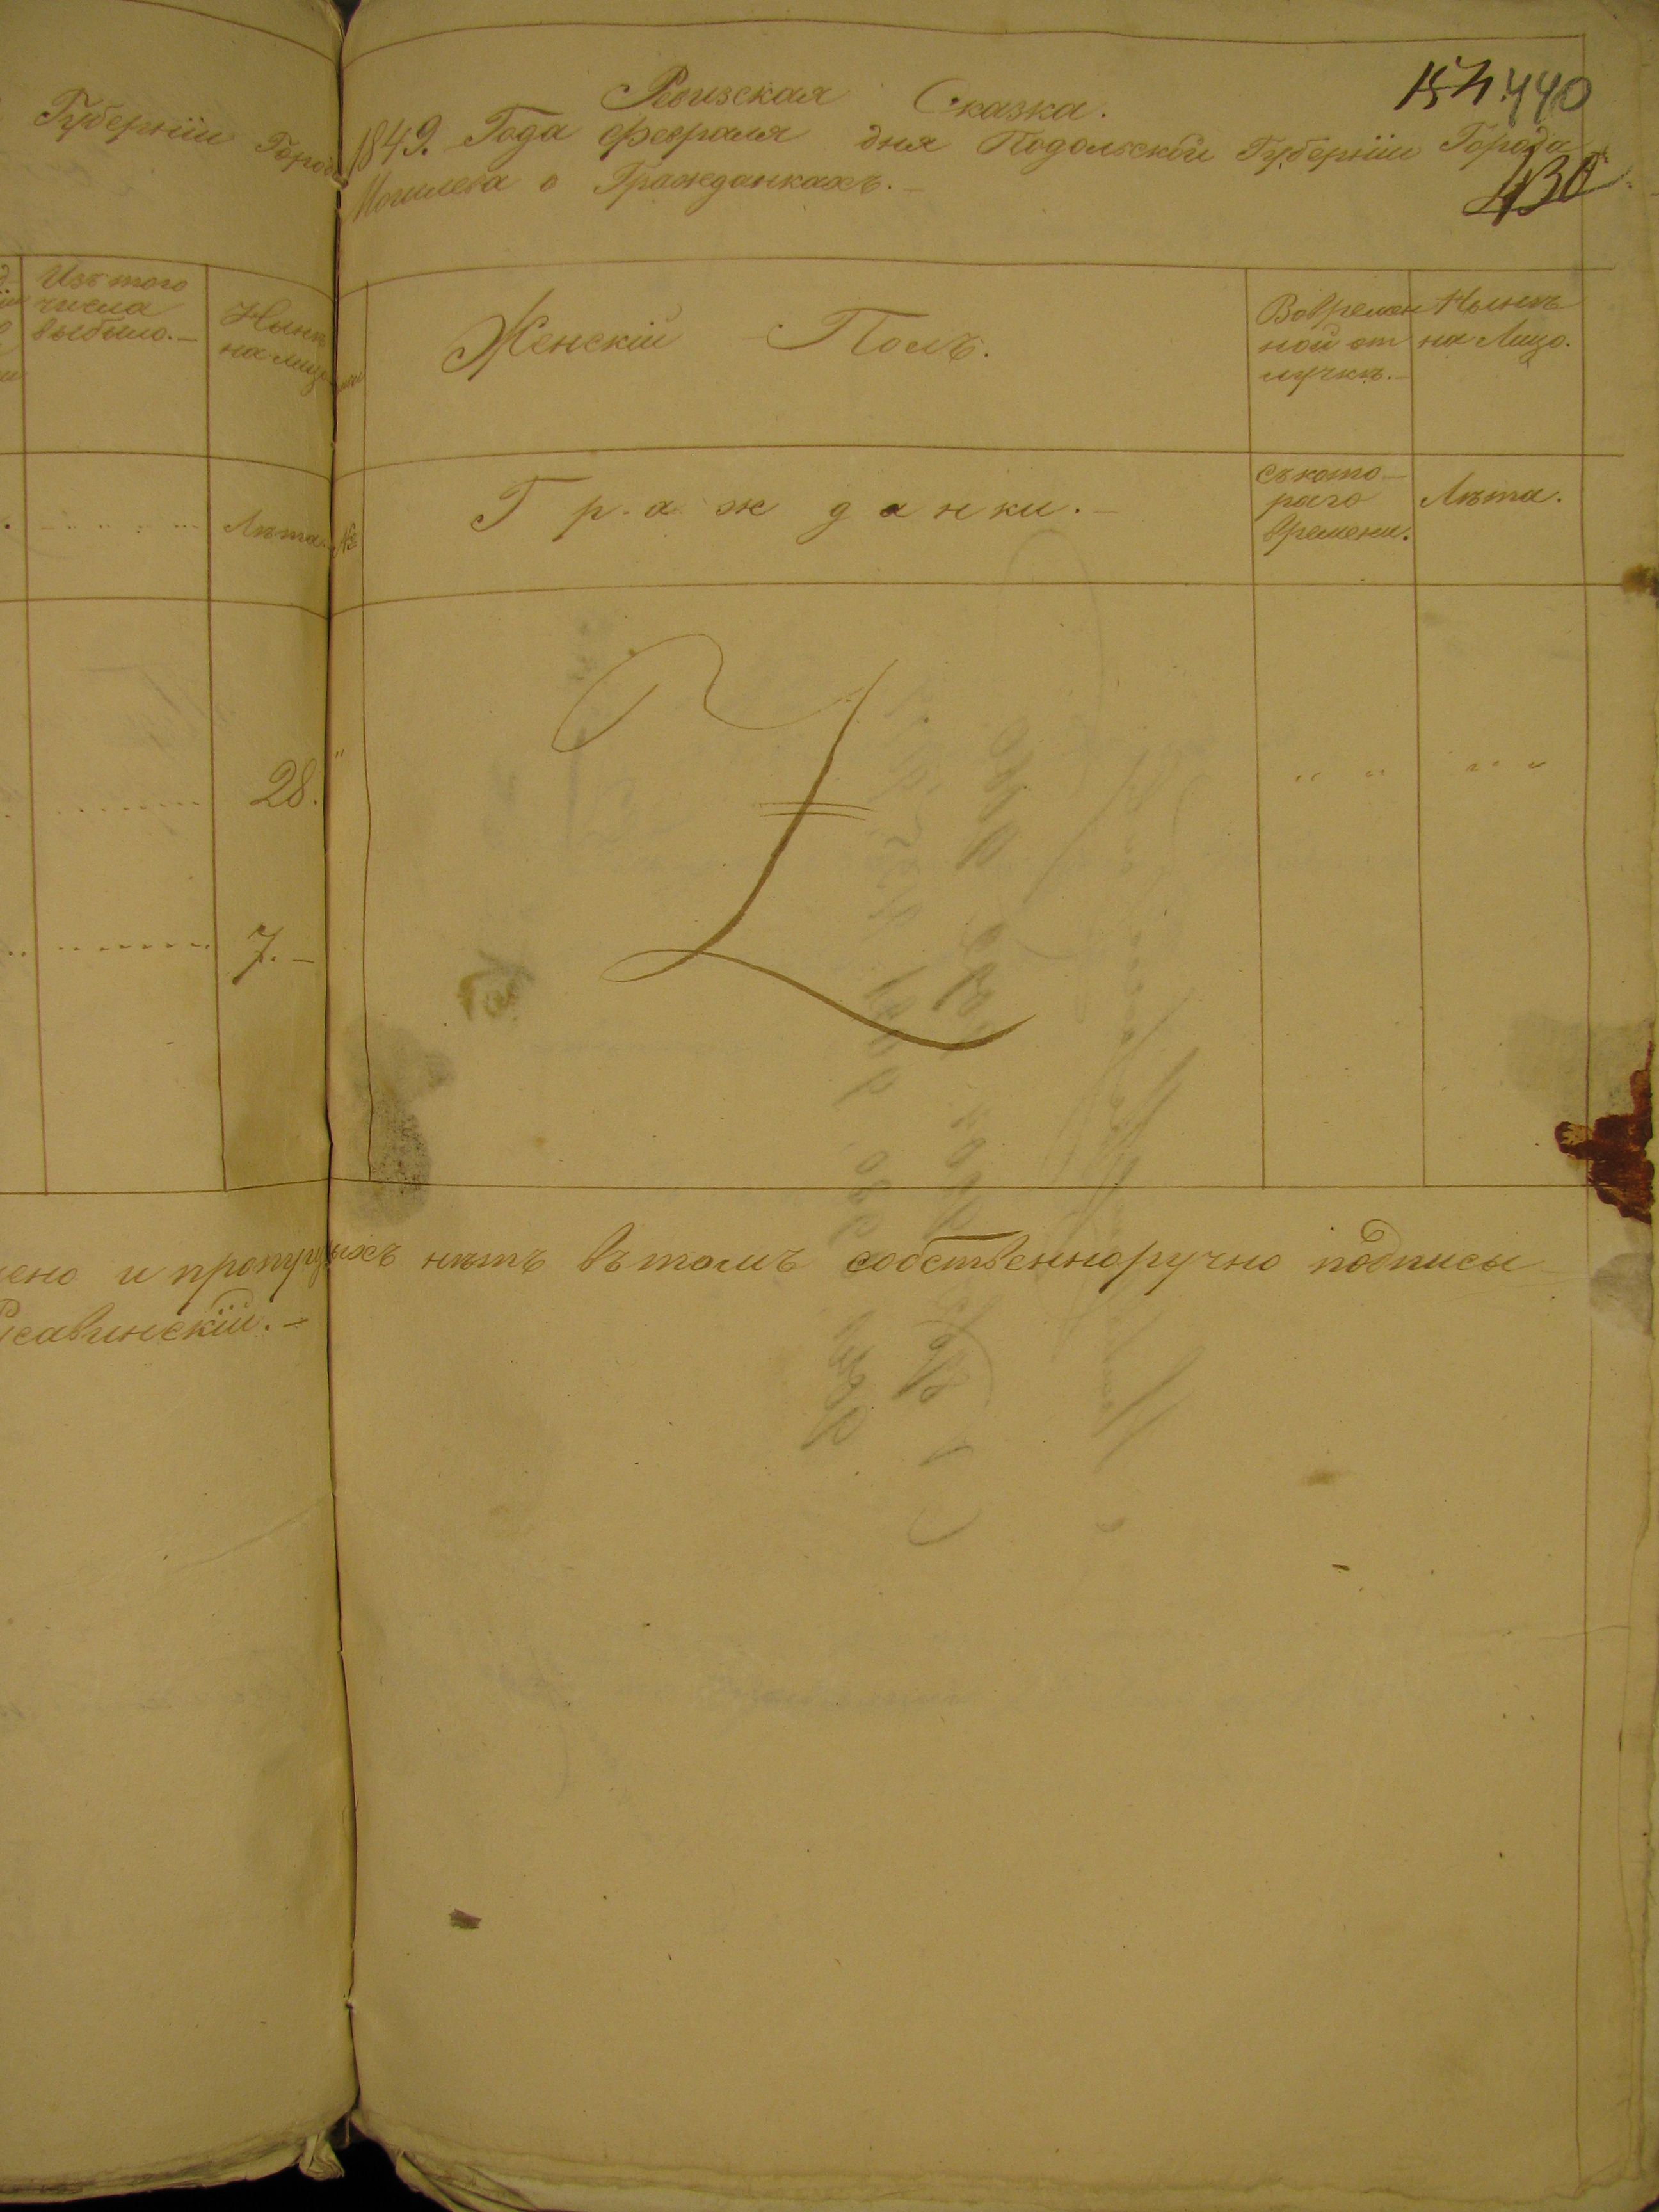 Губерніи Город
Изъ того
числа
выбыло.–
Нынѣ
на лицо
Лѣта.
28.
7.–
ено и пропущ
савинскій.–
154 440
430
Ревизская Сказка.
1849. Года февраля дня Подольской Губерніи Города
Могилева о Гражданкахъ.–
Женскій Полъ.
Вовремен
ной от
лучкѣ.–
Нынѣ
на Лицо.
№
Гражданки.–
съ кото–
раго
времени.
Лѣта.
ыхъ нѣтъ въ томъ собственноручно подписы